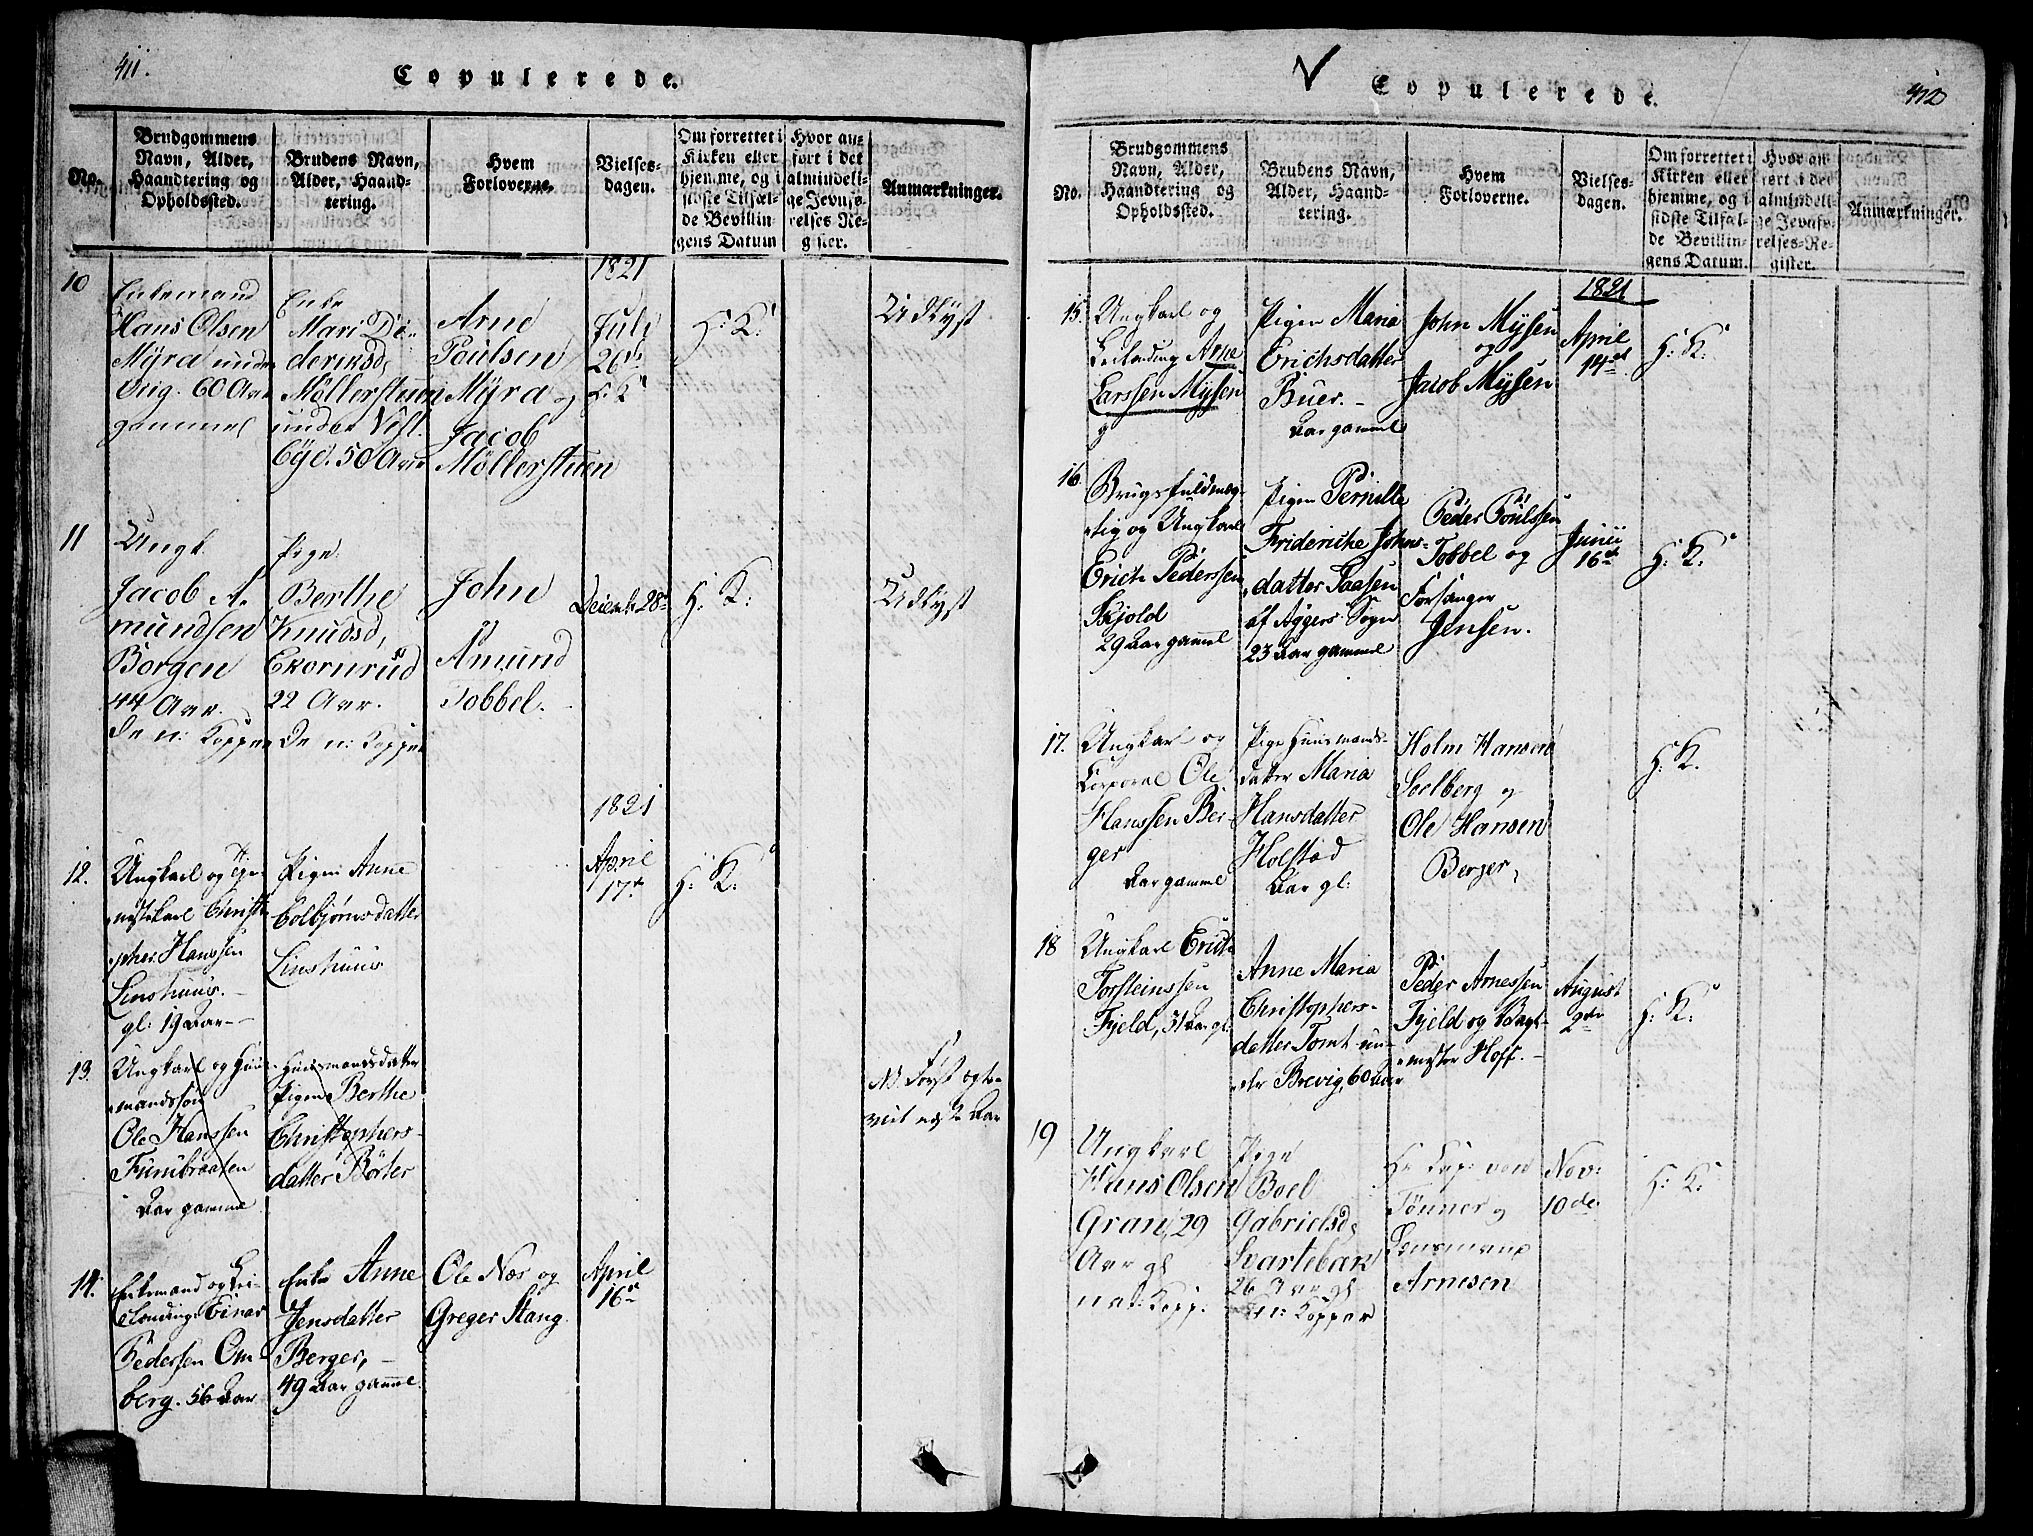 411.
Copulerede.
No.
Brudgommens
Navn, Alder,
Haandtering og
Opholdssted.
Brudens Navn,
Alder, Haand-
tering.
Hvem
Forloverne.
Vielses-
dagen.
Om forrettet i
Kirken eller
hjemme, og i
sidste Tilfæl-
de Bevillin-
gens Datum
Hvor an-
ført i det
almindeli-
ge Jevnfø-
relses-Re-
gister.
Anmærkninger.
10
Enkemand
Hans Olsen
Myra under
60 Aar
gammel
Enke
Mari Di-
deriksd,
Møllerstuen
under Vest
Eyd. 50 Aar
Arne
Poulsen
Myra og
Jacob
Møllerstuen
1821
Juli
26de
H: K:
H: K:
Udlyst
11
Ungk
Jacob A-
mundsen
Borgen
44 Aar.
De n: Kopper
Pige
Berthe
Knudsd,
Ekornrud
22 Aar.
De n: Kopper
John
Amund
Tobbel.
Decemb 28de
H: K:
Udlyst
12.
Ungkarl og Tje-
nestekarl Christo-
pher Hanssen
Linshuus.
gl: 19 Aar
Pigen Anne
Colbjørnsdatter
Linshuus
1821
April
17de
H: K:
13.
Ungkarl og Huus-
mandssøn
Ole Hanssen
Furubraaten
Aar gamml
Huusmandsdatter
Pigen Berthe
Christophers-
datter Børter
NB. Først
Aar
14.
Enkemand og Lei-
lending Einar
Pedersen Om-
berg. 56 Aar
Enke Anne
Jensdatter
Berger,
49 Aar gamml.
Ole Næs og
Greger Stang
April
16de
412
Copulerede.
No.
Brudgommens
Navn, Alder,
Haandtering og
Opholdssted.
Brudens Navn,
Alder, Haand-
tering.
Hvem
Forloverne.
Vielses-
dagen.
Om forrettet i
Kirken eller
hjemme, og i
sidste Tilfæl-
de Bevillin-
gens Datum.
Hvor an-
ført i det
almindeli-
ge Jevnfø-
relses-Re-
gister.
Anmærkninger.
15.
Ungkarl og
Leilending Arne
Larssen Mysen
g
Pigen Maria
Erichsdatter
Buer.
Aar gamml
John Mysen
og
Jacob Mysen
1821
April
14de
H: K:
16.
Brugsfuldmæg-
tig og Ungkarl
Erich Pederssen
Skjold
29 Aar gamml
Pigen Pernille
Fridericke Johns-
datter Paasen
af Aggers Sogn
23 Aar gamml
Peder Poulssen
Tobbel og
Forsanger
Jensen.
Junii
16de
H: K:
17.
Ungkarl og
Corporal Ole
Hanssen Ber-
ger
Aar gamml
Pige Huusmands-
datter Maria
Hansdatter
Holstad
Aar gl:
Holm Hansen
Soelberg og
Ole Hansen
Berger,
H: K.
18
Ungkarl Erich
Torsteinssen
Fjeld, 31 Aar gl
Anne Maria
Christophers-
datter Tomt un-
der Brevig, 60 Aar
Peder Arnessen
Fjeld og Vagt-
mester Hoff.
August
2den
H: K:
19
Ungkarl
Hans Olsen
Gran, 29
Aar gl
nat: Kopp:
Pige
Boel
Gabrielsd,
Svartebæk
26 Aar gl
n: Kopper
Hr Cap: von
Tönner og
Lensmand
Arnesen
Nov:
10de
H: K: